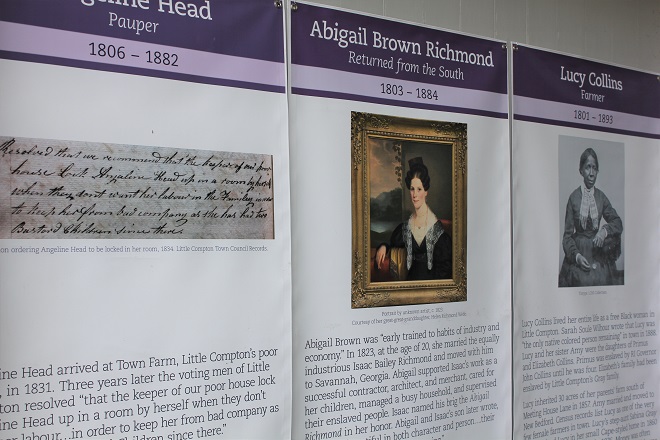 geline Head
Pauper
1806 – 1882
Resolved that we recommend that the keeper of our poor
house lock Angeline Head up in a room by herself
when they don't want her labour in the family in order
to keep her from bad company as she has had two
Bastard Children since there
on ordering Angeline Head to be locked in her room, 1834. Little Compton Town Council Records.
ine Head arrived at Town Farm, Little Compton's poor
, in 1831. Three years later the voting men of Little
ton resolved "that the keeper of our poor house lock
ine Head up in a room by herself when they don't
labour...in order to keep her from bad company as
Children since there."
Abigail Brown Richmond
Returned from the South
1803 – 1884
Portrait by unknown artist, c. 1825
Courtesy of her great-great-granddaughter, Helen Richmond Webb
Abigail Brown was "early trained to habits of industry and
economy." In 1823, at the age of 20, she married the equally
industrious Isaac Bailey Richmond and moved with him
to Savannah, Georgia. Abigail supported Isaac's work as a
successful contractor, architect, and merchant, cared for
her children, managed a busy household, and supervised
their enslaved people. Isaac named his brig the Abigail
Richmond in her honor. Abigail and Isaac's son later wrote,
in both character and person...their
Lucy Collins
Farmer
1801 – 1893
Lucy Collins lived her entire life as a free Black woman in
Little Compton. Sarah Soule Wilbour wrote that Lucy was
"the only native colored person remaining" in town in 1888.
Lucy and her sister Amy were the daughters of Primus
and Elizabeth Collins. Primus was enslaved by RI Governor
John Collins until he was four. Elizabeth's family had been
enslaved by Little Compton's Gray family.
Lucy inherited 30 acres of her parents' south of
Meeting House Lane in 1857. Amy married and moved to
New Bedford. Census records list Lucy as one of the very
few female farmers in town. Lucy's step-